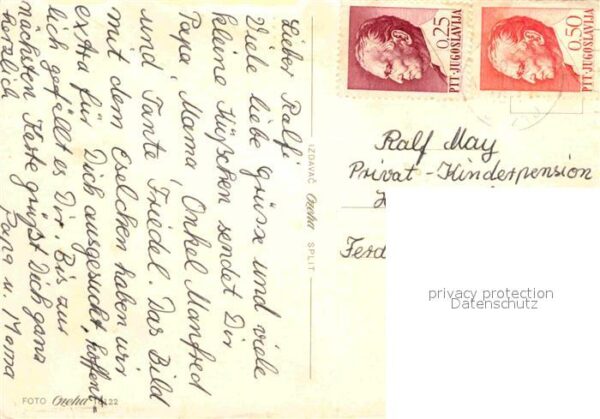 Lieber Ralfi
Viele liebe grüsse und viele
kleine Küßchen sendet Dir
Papa, Mama Onkel Manfred
und Tante Friedel. Das Bild
mit dem Eselchen haben wir
extra für Dich ausgesucht, hoffent-
lich gefällt es Dir. Bis zur
nächsten Karte grüßt Dich ganz
herzlich Papa u. Mama
IZDAVAČ SPLIT
FOTO
0,25
PTT-JUGOSLAVIJA
0,50
PTT-JUGOSLAVIJA
Ralf May
Privat-Kinderpension
Ferd
privacy protection
Datenschutz